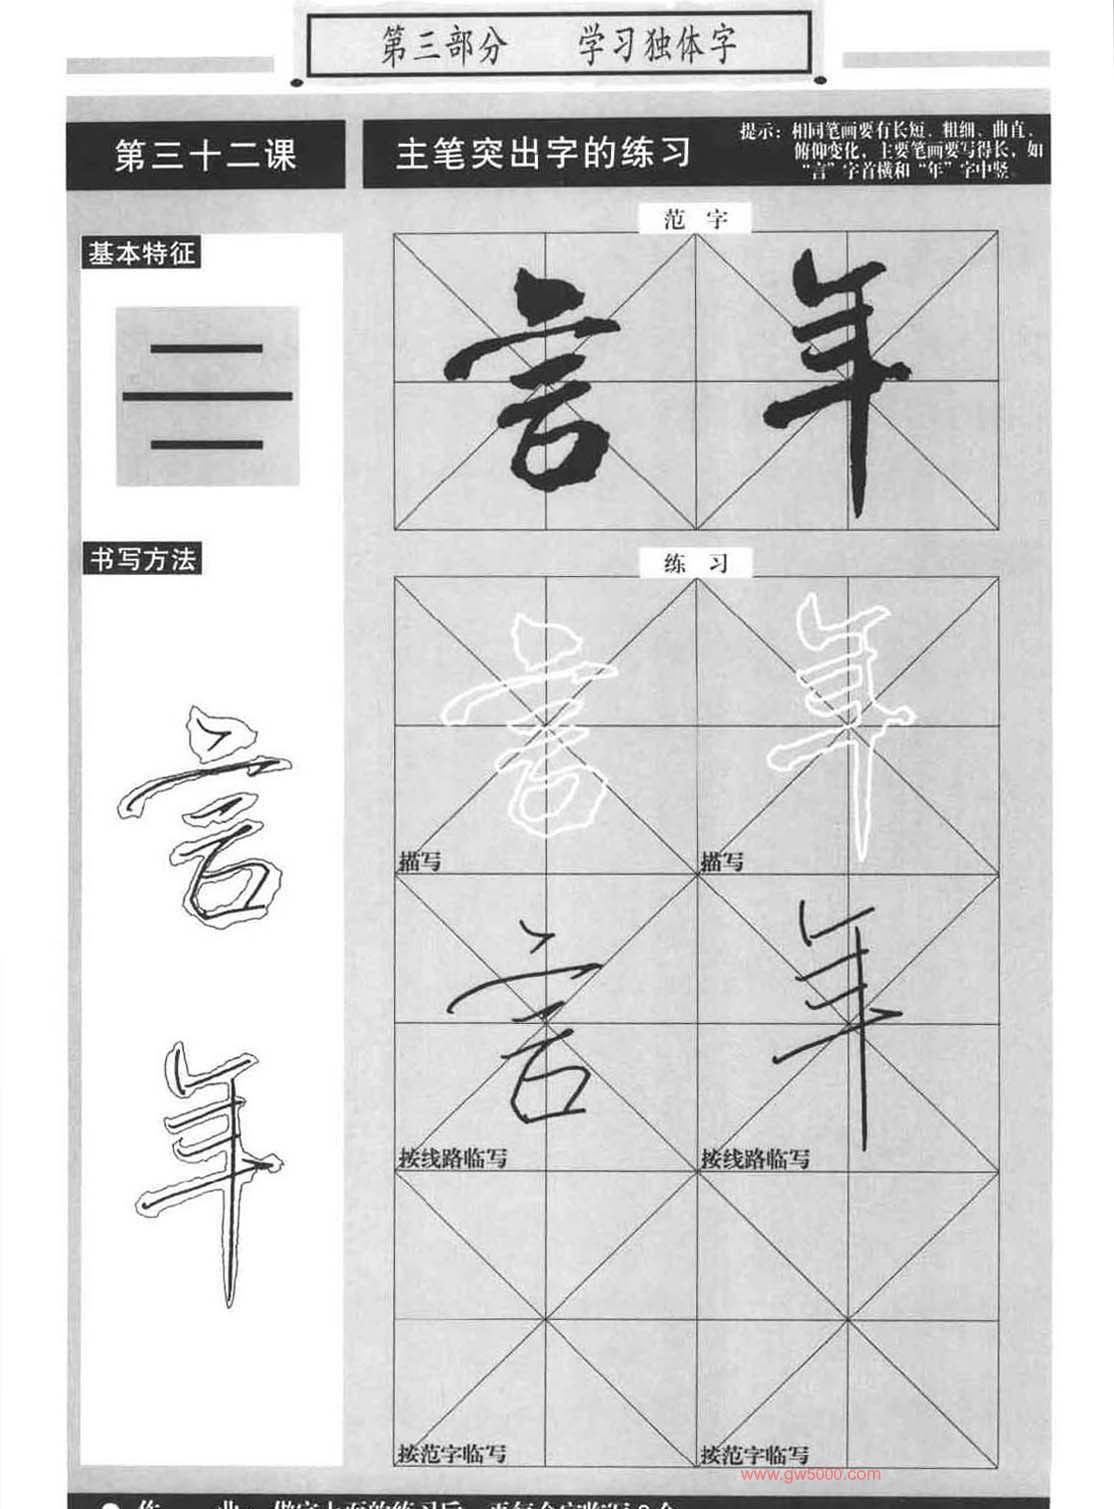 第三部分 学习独体字
第三十二课
主笔突出字的练习
提示：相同笔画要有长短、粗细、曲直、
俯仰变化，主要笔画要写得长，如
“言”字首横和“年”字中竖。
基本特征
书写方法
言
年
范 字
言 年
练 习
言 年
描写 描写
言 年
按线路临写 按线路临写
按范字临写 按范字临写
www.gw5000.com